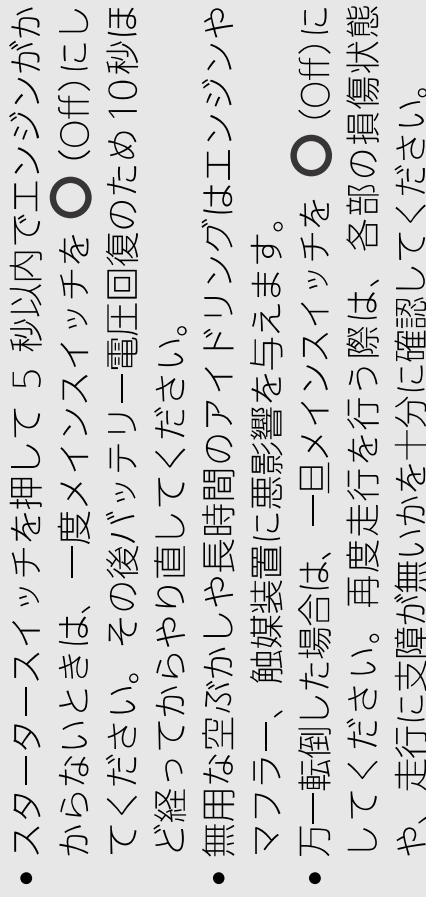 • スタータースイッチを押して 5 秒以内でエンジンがか
からないときは、一度メインスイッチを ○ (Off) にし
てください。その後バッテリー電圧回復のため 10 秒ほ
ど経ってからやり直してください。
• 無用な空ぶかしや長時間のアイドリングはエンジンや
マフラー、触媒装置に悪影響を与えます。
• 万一転倒した場合は、一旦メインスイッチを ○ (Off) に
してください。再度走行を行う際は、各部の損傷状態
や、走行に支障が無いかを十分に確認してください。